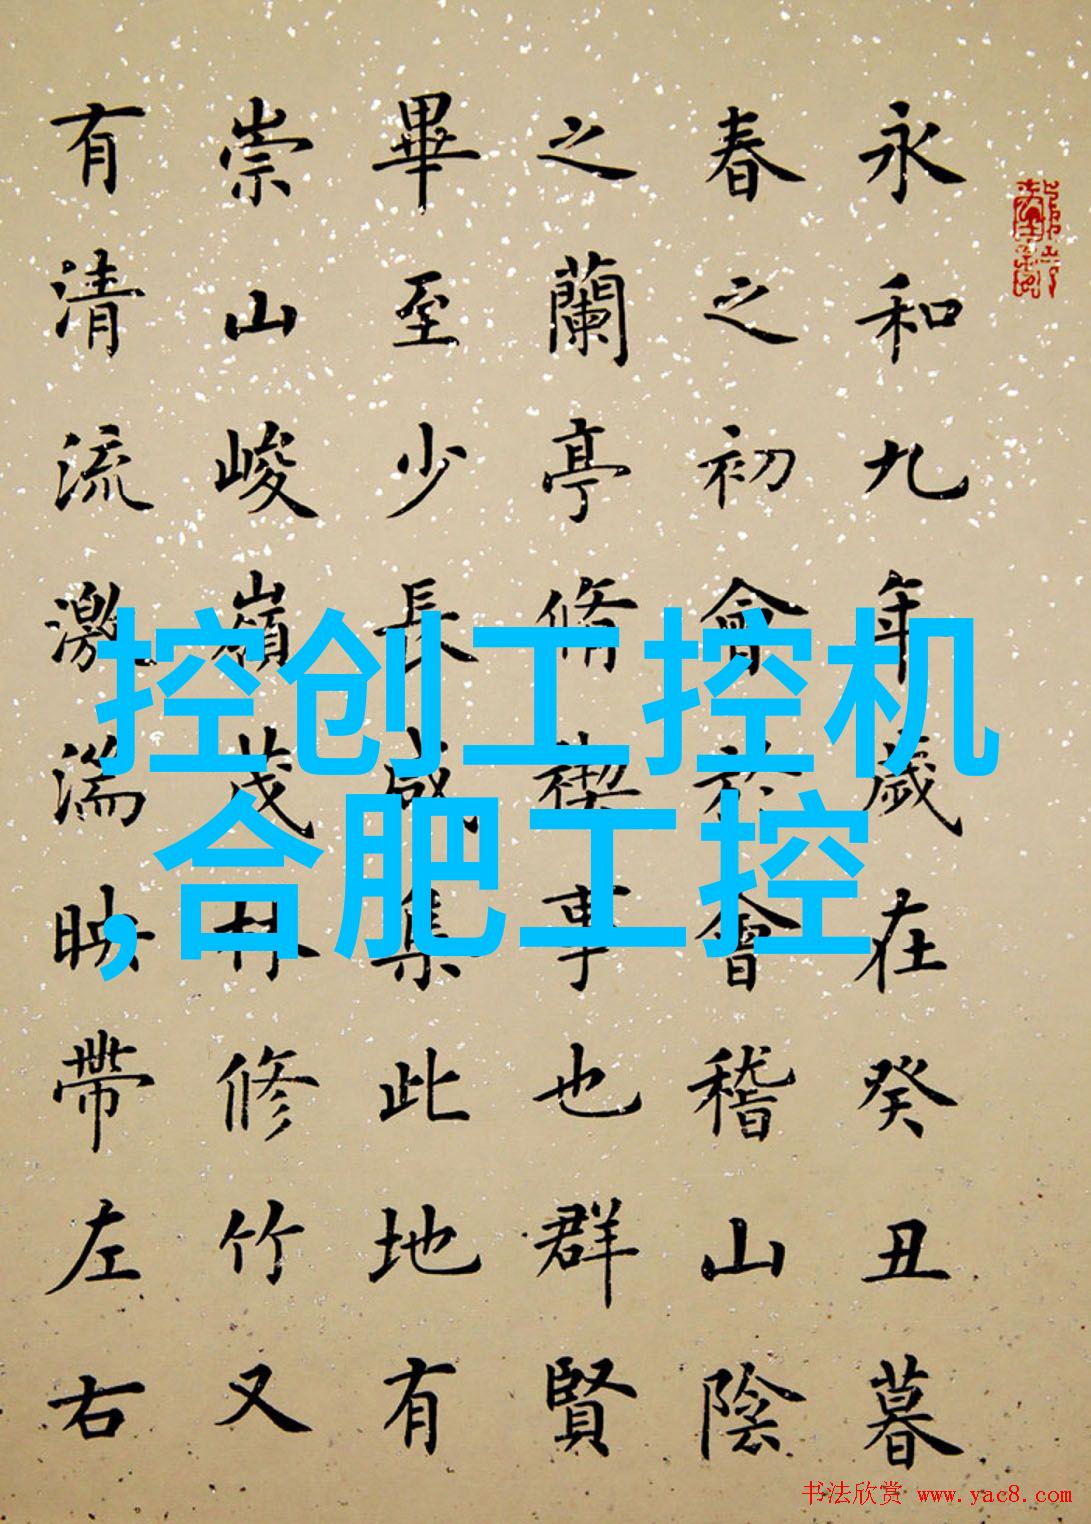 永和九年歲在癸丑暮
春之初會於會稽山陰
之蘭亭脩禊事也群賢
畢至少長咸集此地有
崇山峻嶺茂林修竹又
有清流激湍映帶左右
控创工控机
,合肥工控
书法欣赏 www.yac8.com